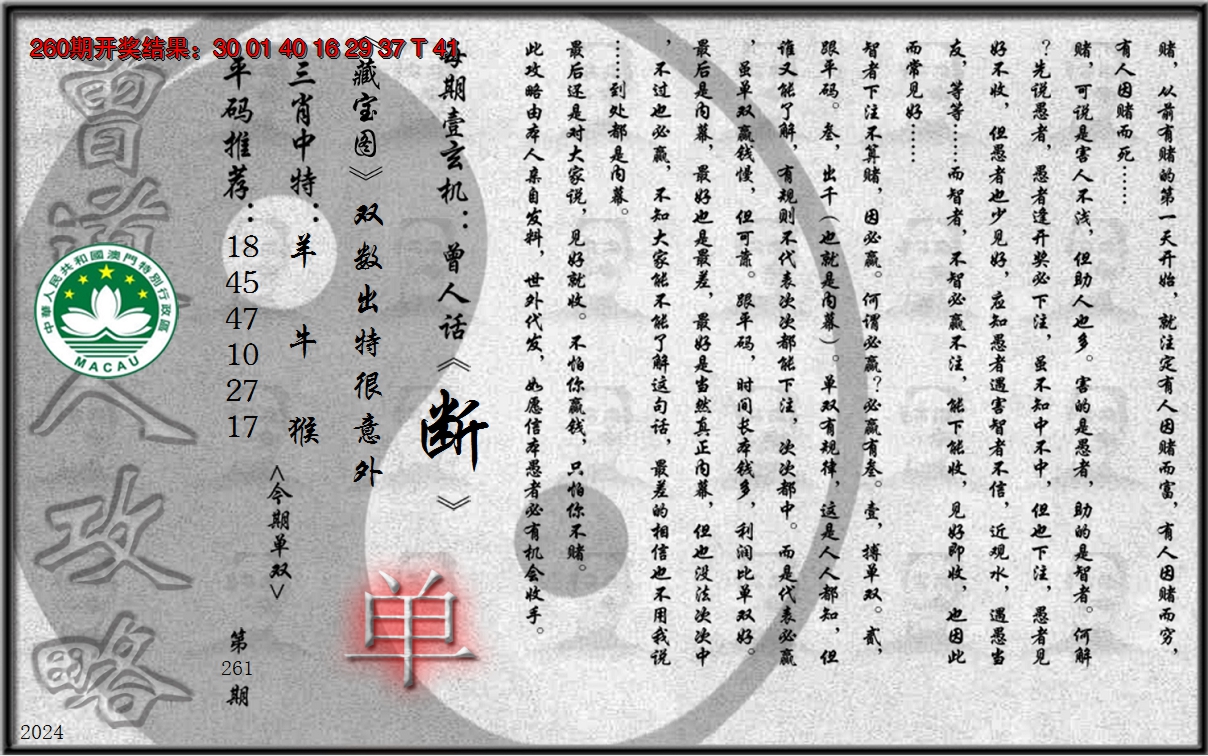 260期开奖结果：30 01 40 16 29 37 T 41
赌，从前有赌的第一天开始，就注定有人因赌而富，有人因赌而穷，
有人因赌而死……
赌，可说是害人不浅，但助人也多。害的是愚者，助的是智者。何解
？先说愚者，愚者逢开奖必下注，虽不知中不中，但也下注，愚者见
好不收，但愚者也少见好，应知愚者遇害智者不信，近观水，遇愚当
友，等等……而智者，不智必赢不注，能下能收，见好即收，也因此
而常见好……
智者下注不算赌，因必赢。何谓必赢？必赢有叁。壹，搏单双。贰，
跟平码。叁，出千（也就是内幕）。单双有规律，这是人人都知，但
谁又能了解，有规则不代表次次都能下注，次次都中。而是代表必赢
，虽单双赢钱慢，但可靠。跟平码，时间长本钱多，利润比单双好。
最后是内幕，最好也是最差，最好是当然真正内幕，但也没法次次中
，不过也必赢，不知大家能不能了解这句话，最差的相信也不用我说
……到处都是内幕。
最后还是对大家说，见好就收。不怕你赢钱，只怕你不赌。
此攻略由本人亲自发料，世外代发，如愿信本愚者必有机会收手。
每期壹玄机：曾人话《断》
《藏宝图》双数出特很意外
单
三肖中特：羊 牛 猴
<今期单双>
平码推荐：18 45 47 10 27 17
第261期
曾道人攻略
中華人民共和國澳門特別行政區
MACAU
2024